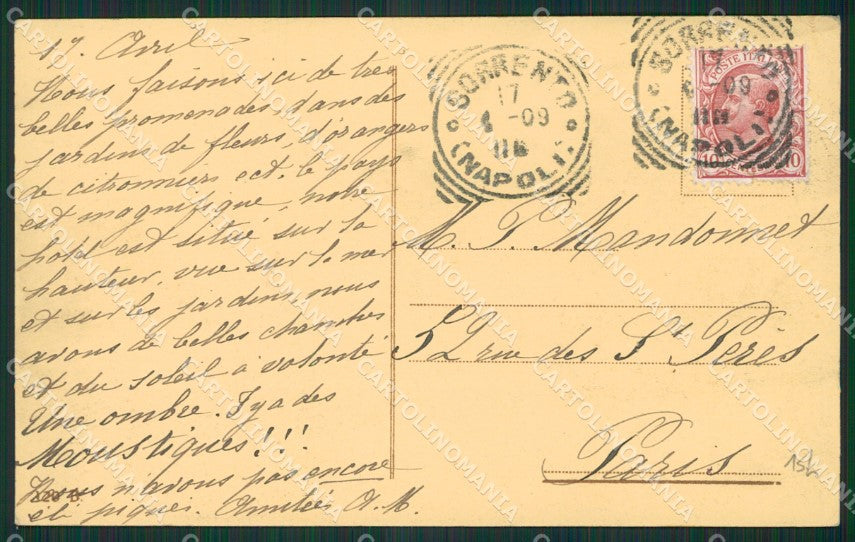 17. Avril
Nous faisons ici de tres
belles promenades, dans des
jardins de fleurs, d'orangers
de citronniers ect. le pays
est magnifique, notre
hotel est situé sur la
hauteur, vue sur la mer
et sur les jardins, nous
avons de belles chambres
et du soleil à volonté
Une ombre. Il y a des
Moustiques!!!
Nous n'avons pas encore
été piqués. Amitiés A. M.
SORRENTO
17
4 -09
(NAPOLI)
SORRENTO
-09
(NAPOLI)
POSTE ITALIANE
10 10
M. P. Mandonnet
52 rue des Sts Pères
Paris
CARTOLINOMANIA